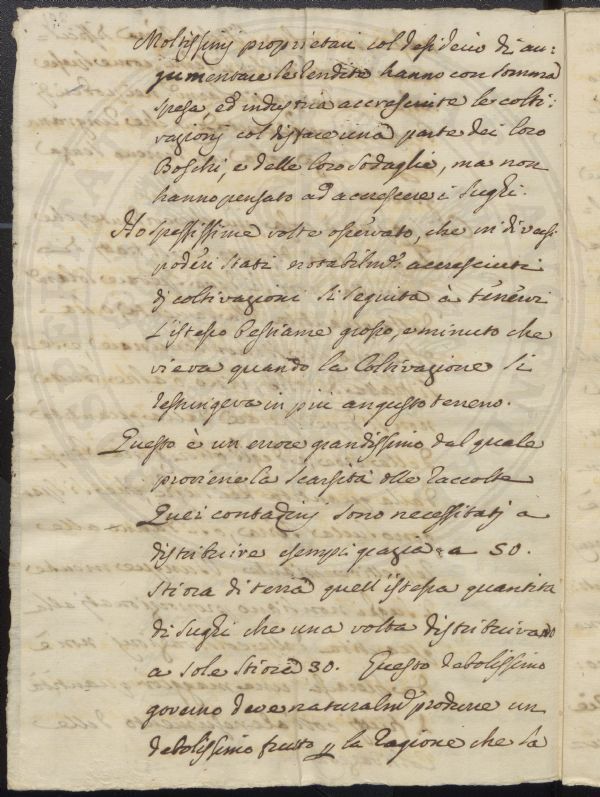 Moltissimj proprietari col desiderio di au=
gumentare le rendite hanno con somma
spesa, ed industria accresciute le colti=
vazionj col disfare una parte dei loro
Boschi, e delle loro Sodaglie, ma non
hanno pensato ad accrescere i Sughi.
Ho spessissime volte osservato, che in diversi
poderi stati notabilm.e accresciuti
di coltivazioni si seguita à tenervi
l'istesso bestiame grosso, e minuto che
vi era quando la Coltivazione si
restringeva in più angusto terreno.
Questo è un errore grandissimo dal quale
proviene la scarsità delle raccolte
Quei contadinj sono necessitatj a
distribuire esempi grazia a 50.
stiora di terra quell'istessa quantità
di Sughi che una volta distribuivano
a sole stiora 30. Questo debolissimo
governo deve naturalm.e produrre un
debolissimo frutto p la ragione che la